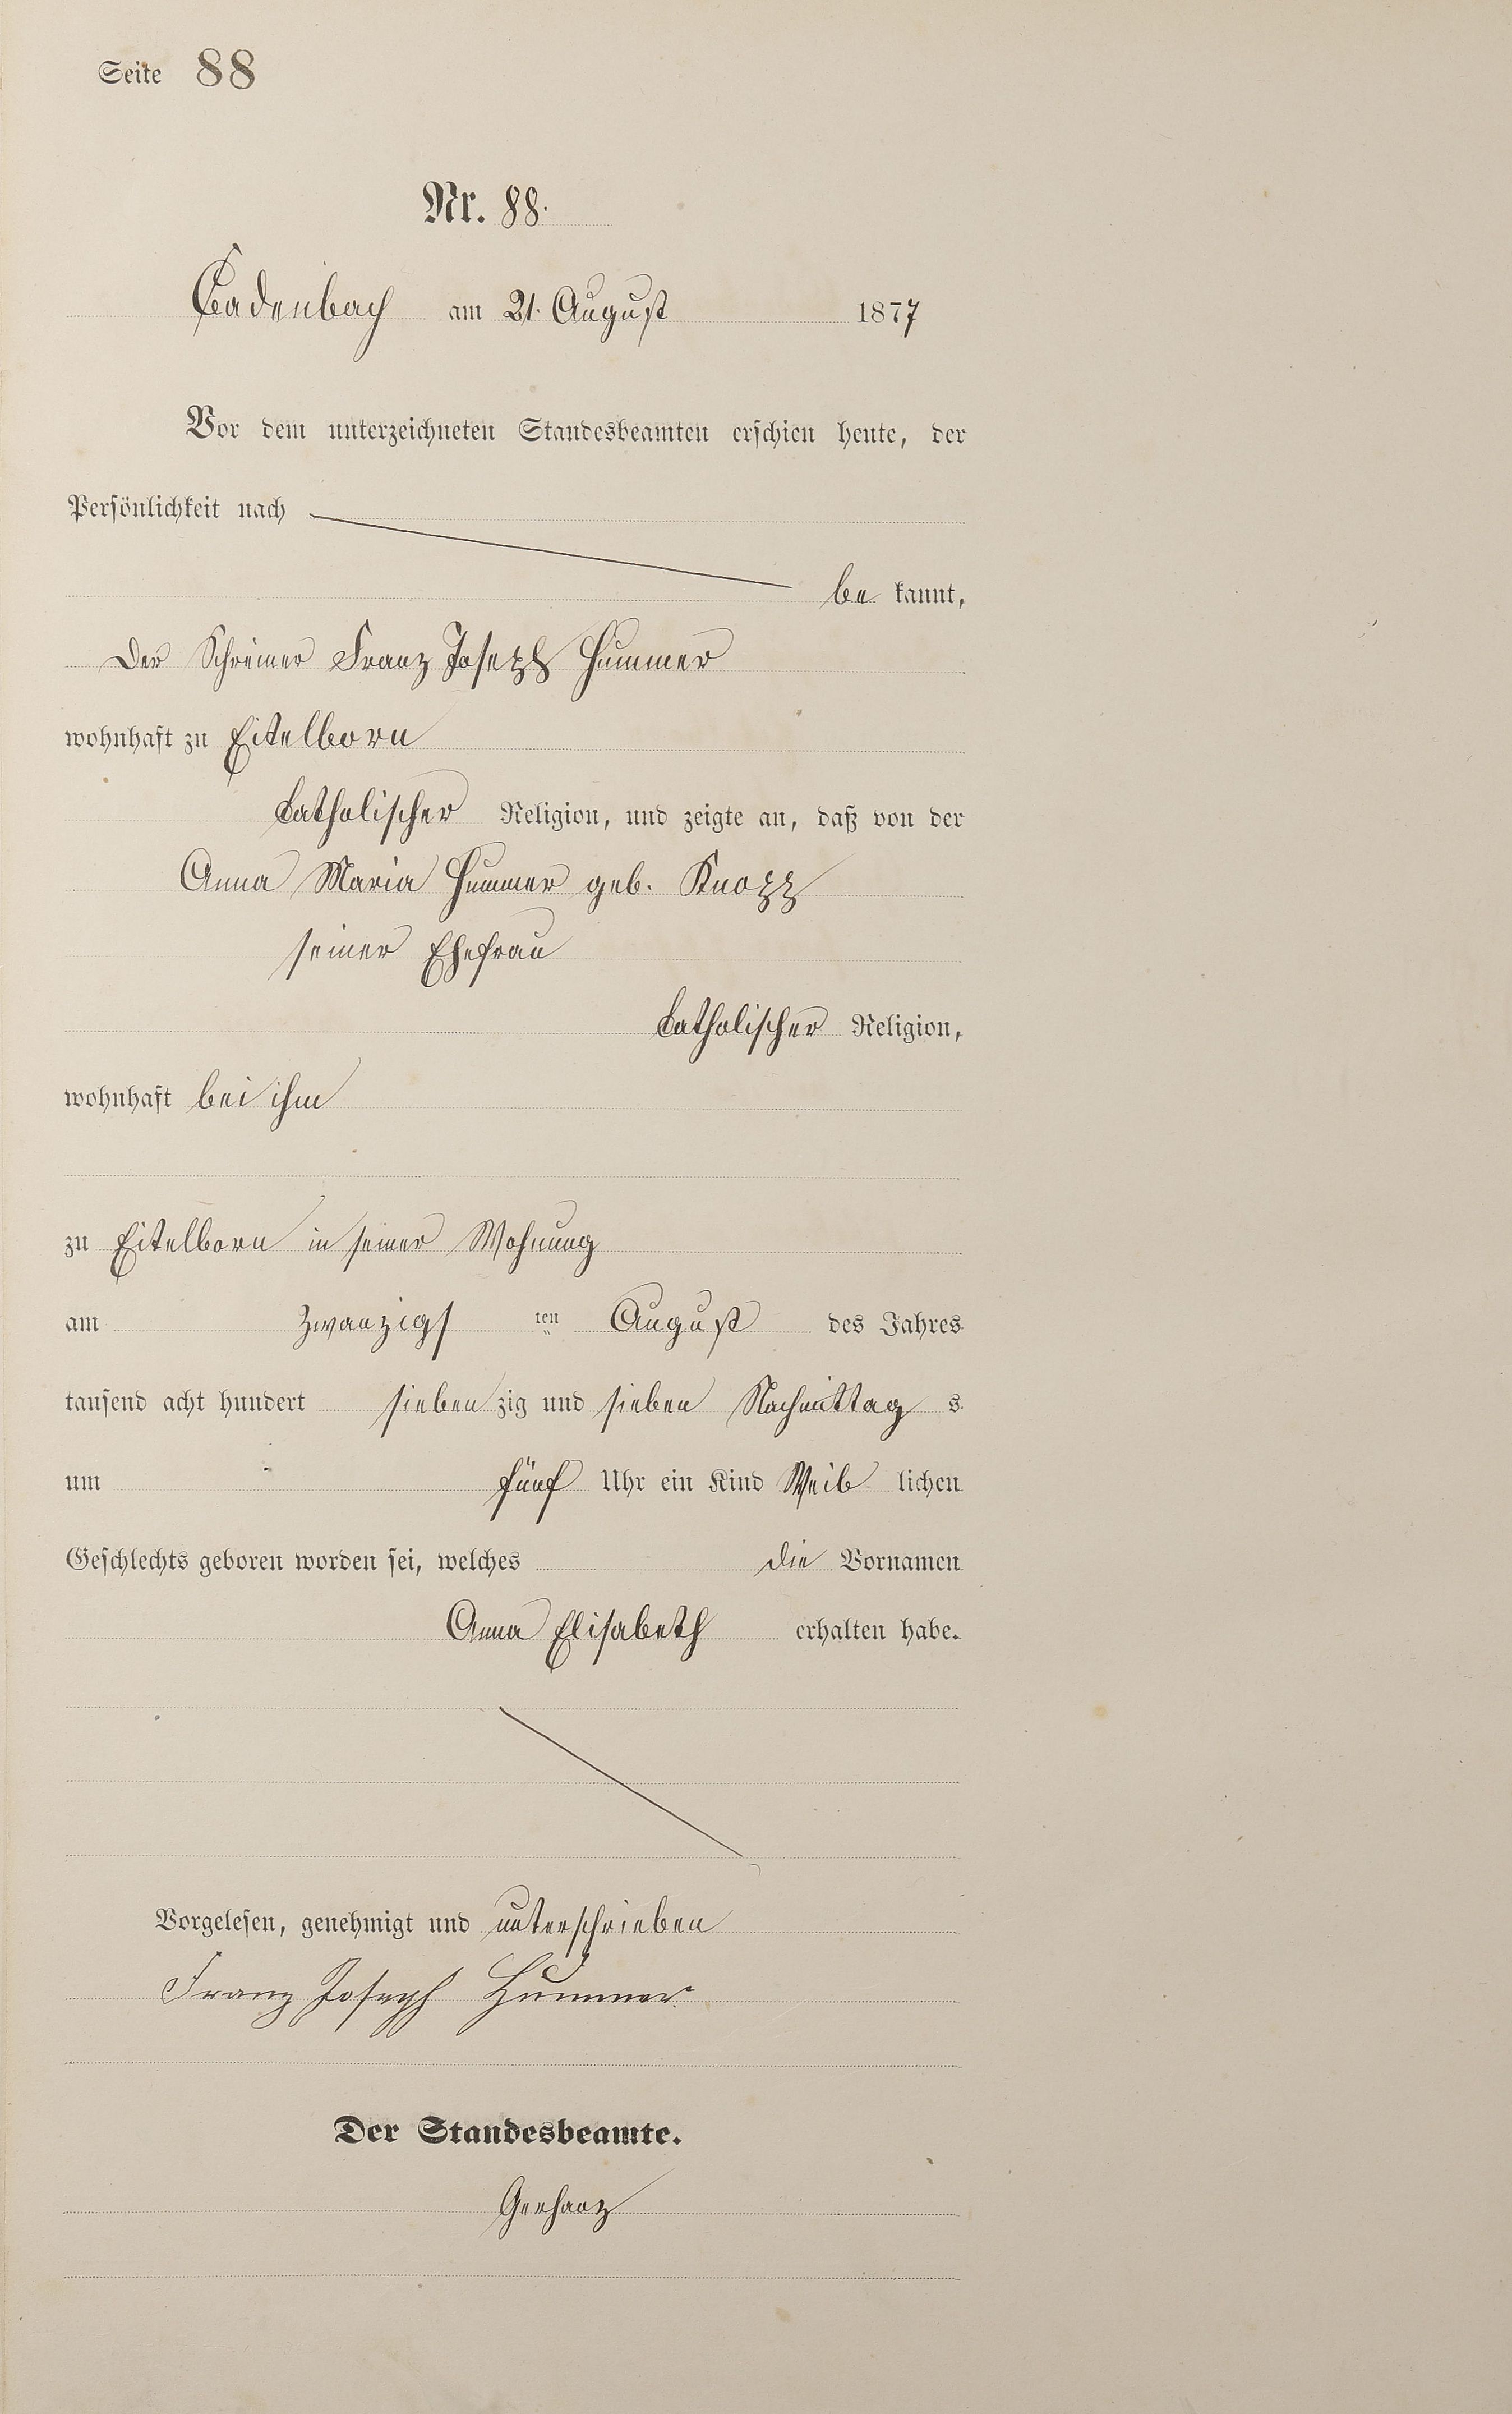 Seite 88
Nr. 88.
Cadenbach am 21. August 1877
Vor dem unterzeichneten Standesbeamten erschien heute, der
Persönlichkeit nach
be kannt,
Der Schreiner Franz Joseph Hummer
wohnhaft zu Eitelborn
katholischer Religion, und zeigte an, daß von der
Anna Maria Hummer geb. Knopp
seiner Ehefrau
katholischer Religion,
wohnhaft bei ihm
zu Eitelborn in seiner Wohnung
am zwanzigs ten August des Jahres
tausend acht hundert sieben zig und sieben Nachmittag s
um fünf Uhr ein Kind Weib lichen
Geschlechts geboren worden sei, welches die Vornamen
Anna Elisabeth erhalten habe.
Vorgelesen, genehmigt und unterschrieben
Franz Joseph Hummer.
Der Standesbeamte.
Gerharz